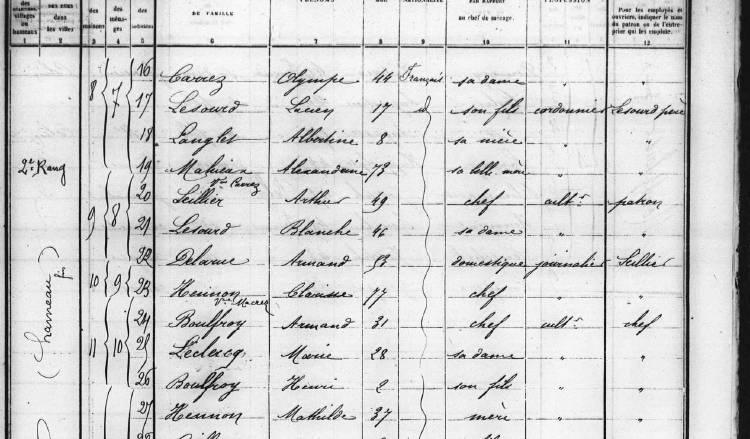 villages ou hameaux dans les villes des maisons des ménages des individus DE FAMILLE PRÉNOMS NATIONALITÉ PAR RAPPORT au chef de ménage. PROFESSION Pour les employés et ouvriers, indiquer le nom du patron ou de l'entreprise qui les emploie.
1 2 3 4 5 6 7 8 9 10 11 12
16 Carrez Olympe 44 Français sa dame " "
8 7 17 Lesourd Lucien 17 id son fils cordonnier Lesourd père
18 Langlet Albertine 8 sa nièce " "
2e Rang 19 Mahieux Alexandrine 73 sa belle mère " "
Vve Carrez
20 Seillier Arthur 49 chef cultr patron
9 8 21 Lesourd Blanche 46 sa dame " "
22 Delarue Armand 53 domestique journalier Seillier
10 9 23 Hennon Clarisse 77 chef " "
Vve Macrez
24 Boulfroy Armand 31 chef cultr chef
11 10 25 Leclercq Marie 28 sa dame " "
26 Boulfroy Henri 2 son fils " "
27 Hennon Mathilde 37 mère " "
(hameau)